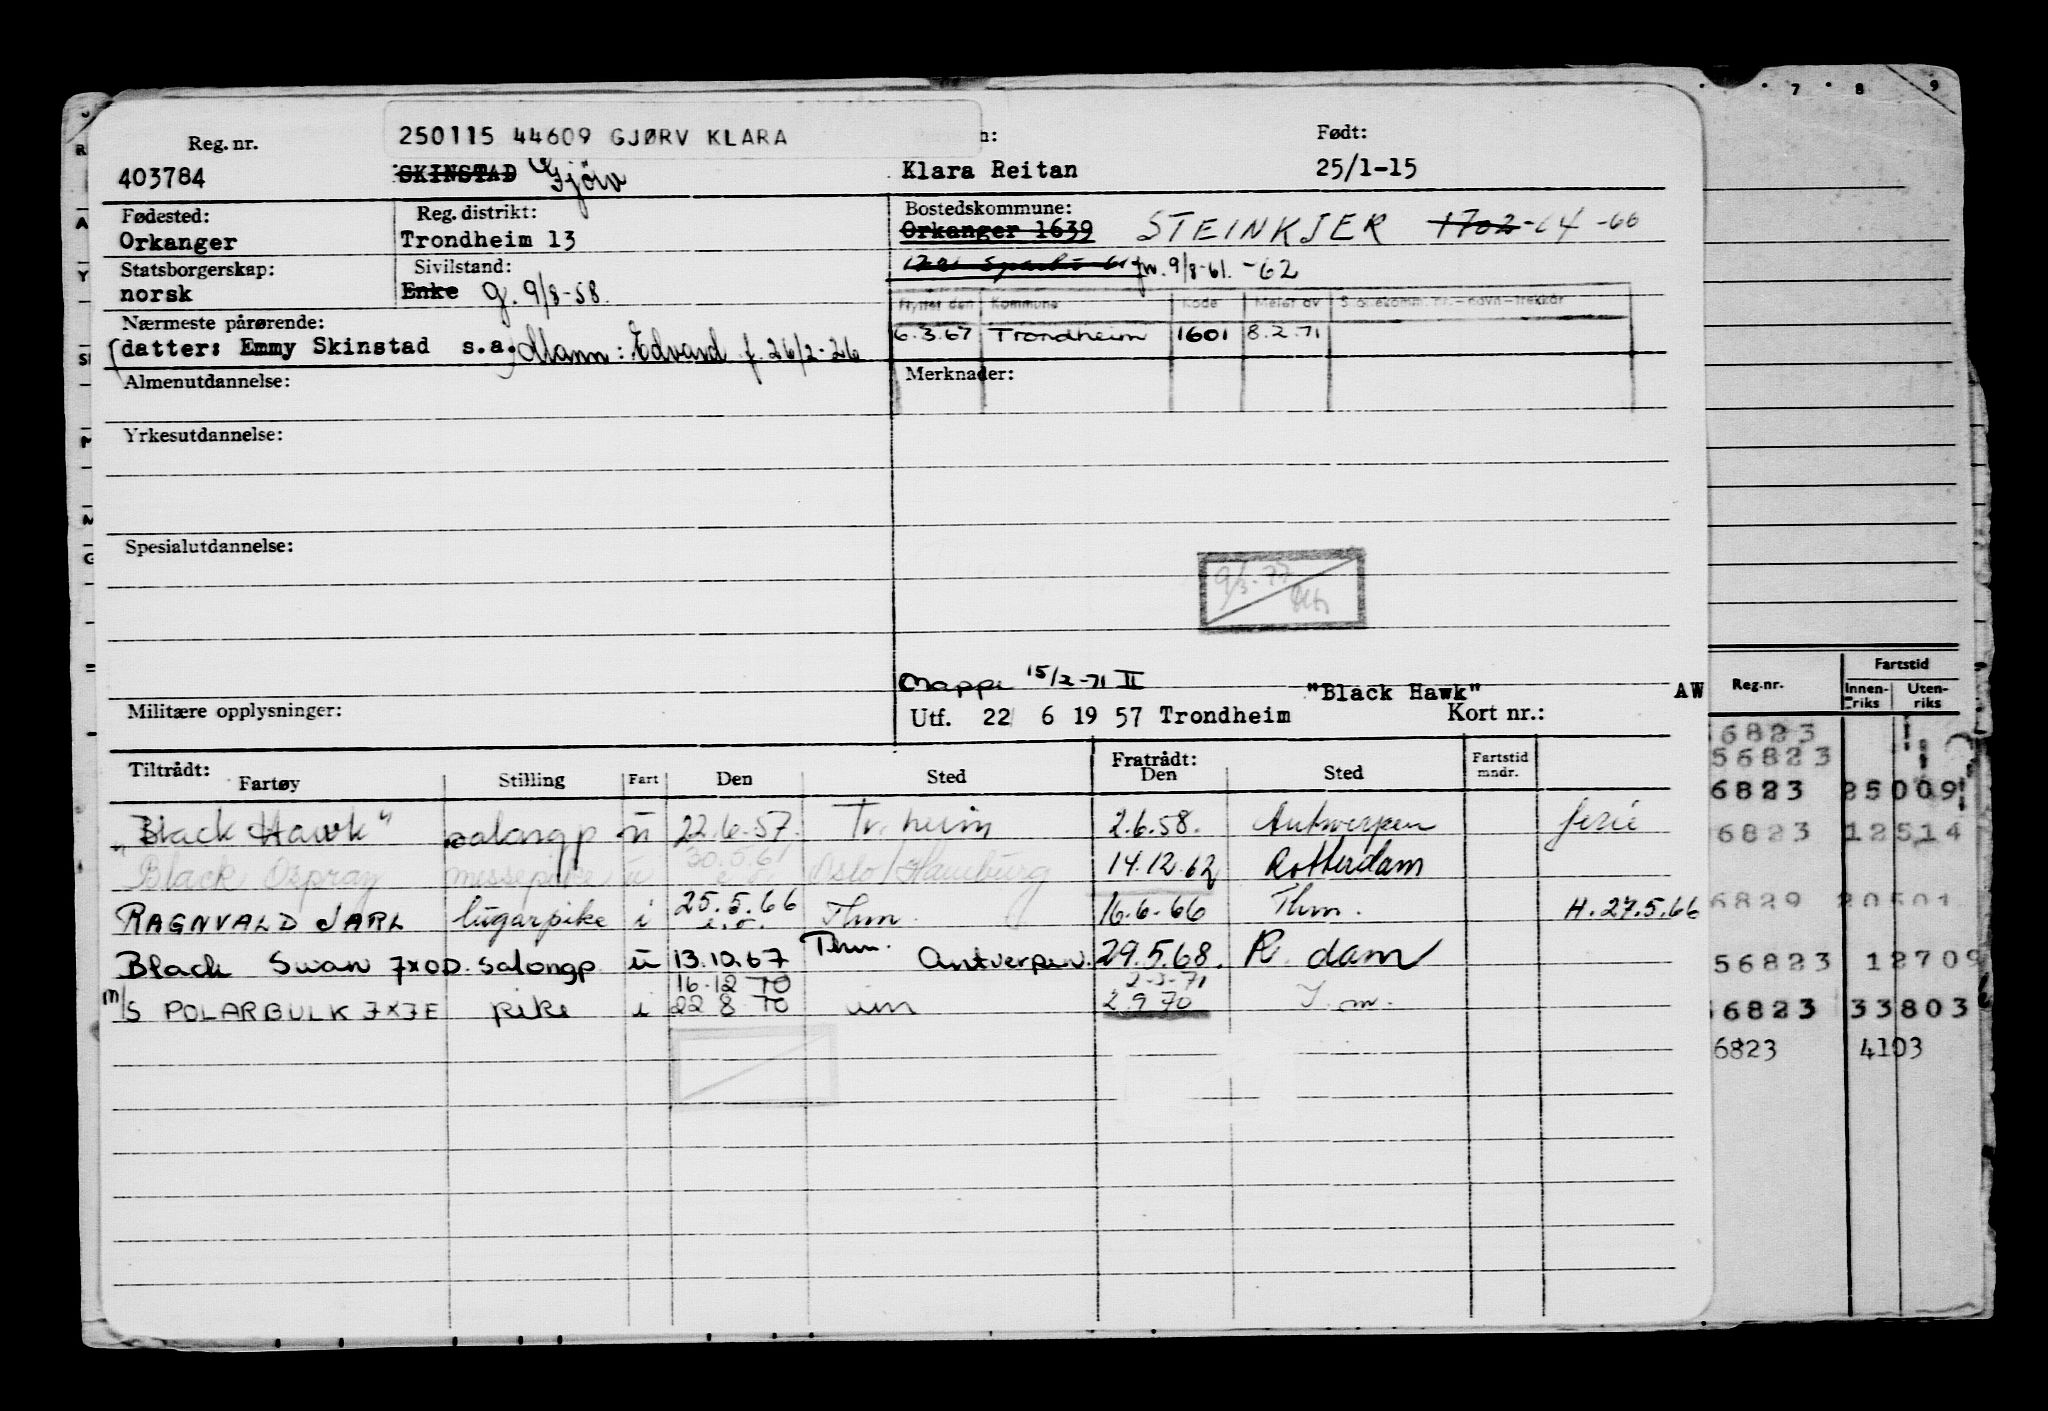 250115 44609 GJØRV KLARA
Reg. nr.
403784
SKINSTAD Gjörv
n:
Klara Reitan
Født:
25/1-15
Fødested:
Orkanger
Reg. distrikt:
Trondheim 13
Bostedskommune:
Orkanger 1639 STEINKJER 1702-64 -66
Statsborgerskap:
norsk
Sivilstand:
Enke g. 9/8-58.
9/8-61. -62
Flyttet den Kommune Kode Meldt av
6.3.67 Trondheim 1601 8.2.71
Nærmeste pårørende:
(datter: Emmy Skinstad s.a.) Mann: Edvard f. 26/2-26
Almenutdannelse:
Merknader:
Yrkesutdannelse:
Spesialutdannelse:
9/3-77
Mappe 15/2-71 II
"Black Hawk" AW
Militære opplysninger:
Utf. 22 6 19 57 Trondheim Kort nr.:
Tiltrådt:
Fartøy Stilling Fart Den Sted
Fratrådt:
Den Sted
Fartstid
mndr.
"Black Hawk" salongp ü 22.6.57. Tr.heim 2.6.58. Antwerpen ferie
Black Ospray messepike u 30.5.61 Oslo/Hamburg 14.12.62 Rotterdam
RAGNVALD JARL lugarpike i 25.5.66 Thm. 16.6.66 Thm. H. 27.5.66
Black Swan 7x0D. salongp ü 13.10.67 Thm. Antverpen. 29.5.68. R.dam
16 12 70 2-3-71
M/S POLARBULK 7x7E pike i 22 8 70 um 2 9 70 I.m.
7 8 9
Reg.nr.
Fartstid
Innen-
riks
Uten-
riks
6823
56823
6823 25009
6823 12514
6829 20501
56823 12709
6823 33803
6823 4103